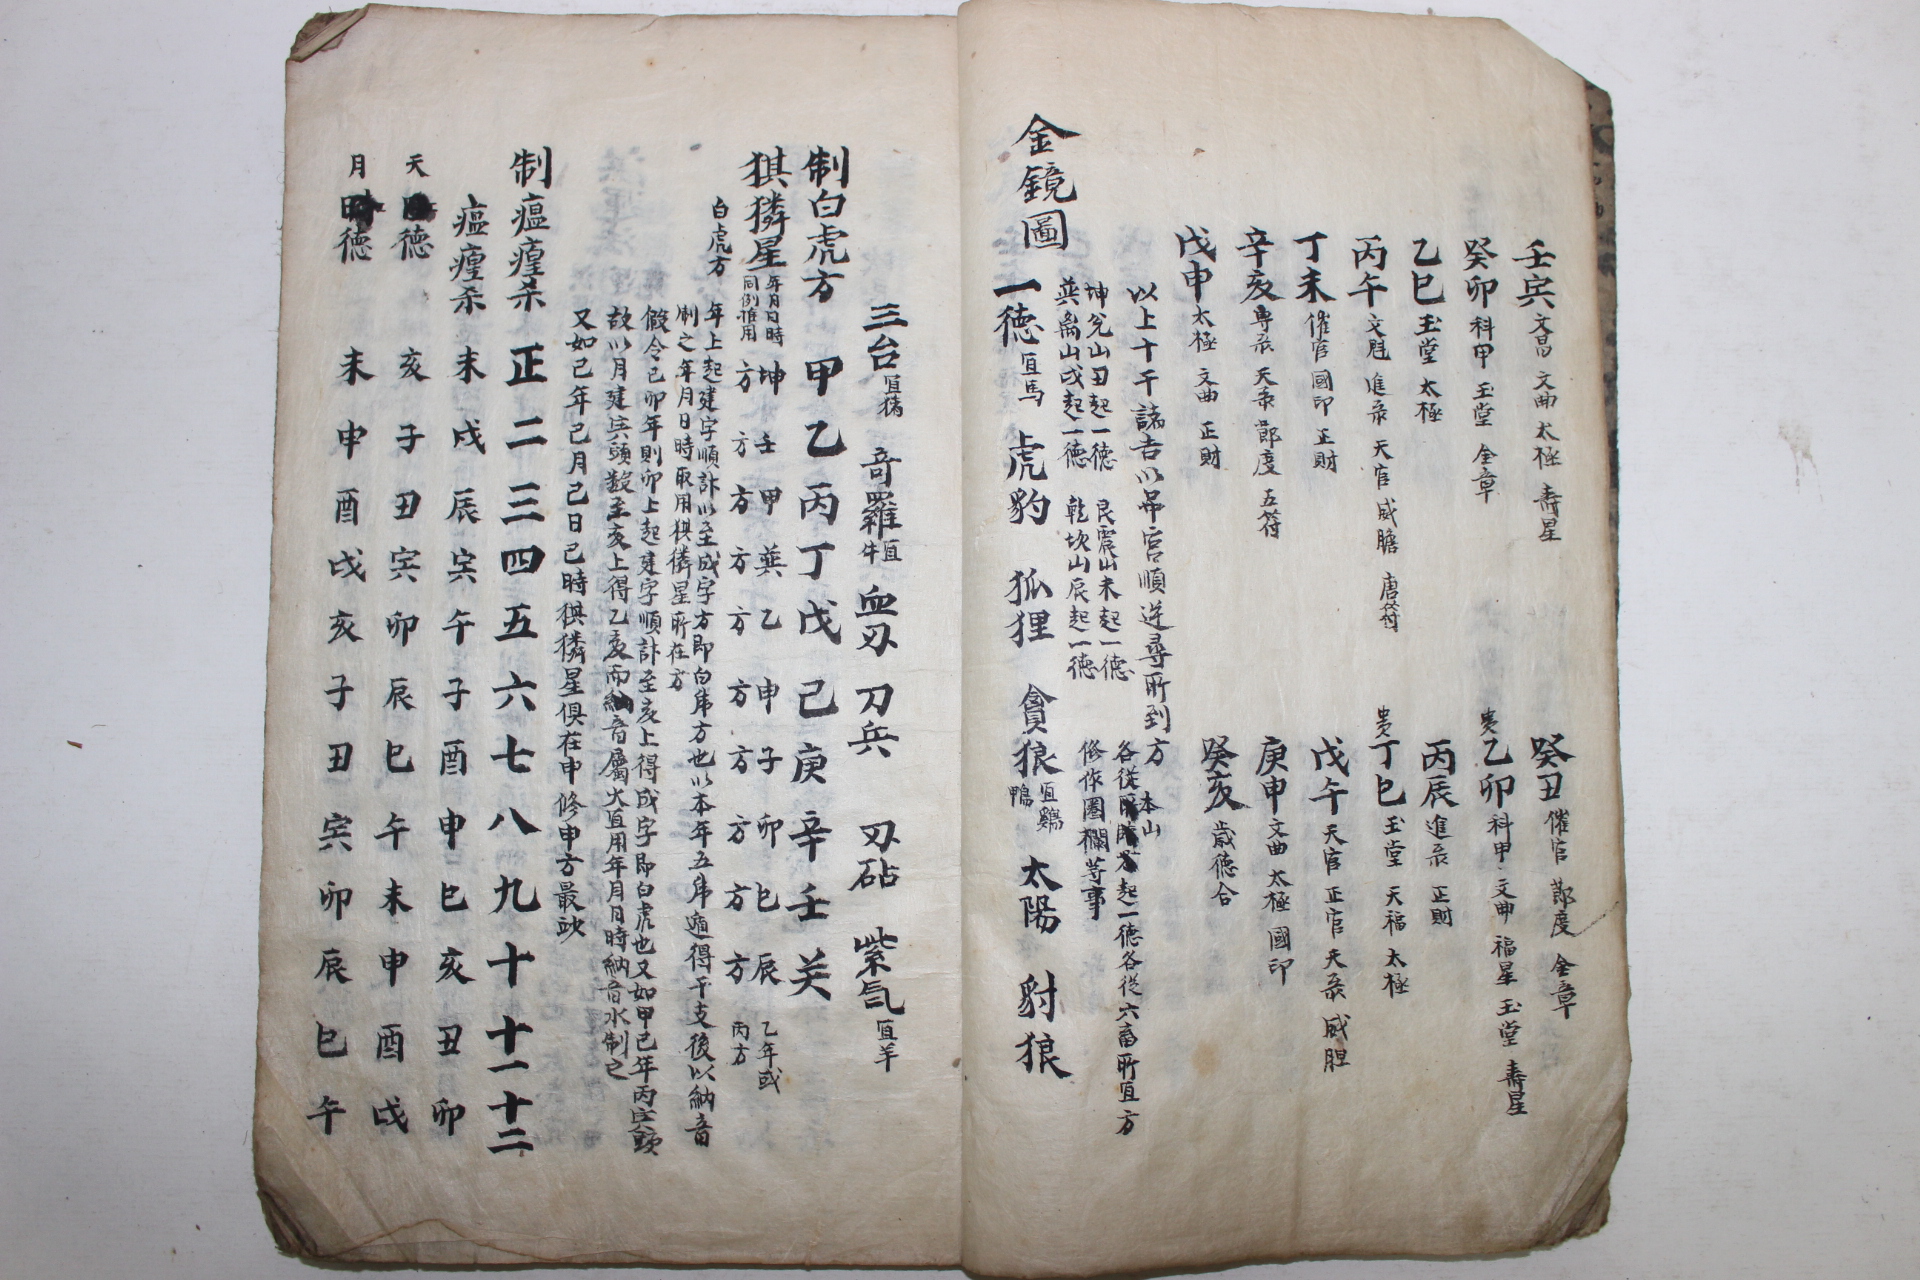 壬寅 文昌 文曲 太極 壽星
癸丑 催官 節度 金章
癸卯 科甲 玉堂 金章
貴 乙卯 科甲 文曲 福星 玉堂 壽星
乙巳 玉堂 太極
丙辰 進彔 正財
丙午 文魁 進彔 天官 威膽 唐符
貴 丁巳 玉堂 天福 太極
丁未 催官 國印 正財
戊午 天官 正官 天彔 威胆
辛亥 専彔 天彔 節度 五符
庚申 文曲 太極 國印
戊申 太極 文曲 正財
癸亥 歲德合
以上十干諸吉以吊宮順逆尋所到方
坤兌山丑起一德 艮震山未起一德
巽离山戌起一德 乾坎山辰起一德
各從本山起一德各從六畜所宜方
修作圈欄等事
金鏡圖 一德 宜馬 虎豹 狐狸 貪狼 宜鷄鴨 太陽 豺狼
三台 宜猪 奇羅 宜牛 血刃 刀兵 刃砧 紫气 宜羊
制白虎方 甲乙丙丁戊己庚辛壬癸
猉獜星 年月日時同例推用 坤方 壬方 甲方 巽方 乙方 申方 子方 卯方 巳方 辰方 乙年或丙方
白虎方 年上起建字順計以至成字方即白虎方也以本年五虎遁得干支後以納音
制之年月日時取用猉獜星所在方
假令己卯年則卯上起建字順計至亥上得成字即白虎也又如甲己年丙寅頭
故以月建寅頭数至亥上得乙亥而納音屬火宜用年月日時納音水制之
又如己年己月己日己時猉獜星俱在申修申方最訣
制瘟㾮杀 正二三四五六七八九十十一十二
瘟㾮杀 未戌辰寅午子酉申巳亥丑卯
天德 亥子丑寅卯辰巳午未申酉戌
月德 未申酉戌亥子丑寅卯辰巳午